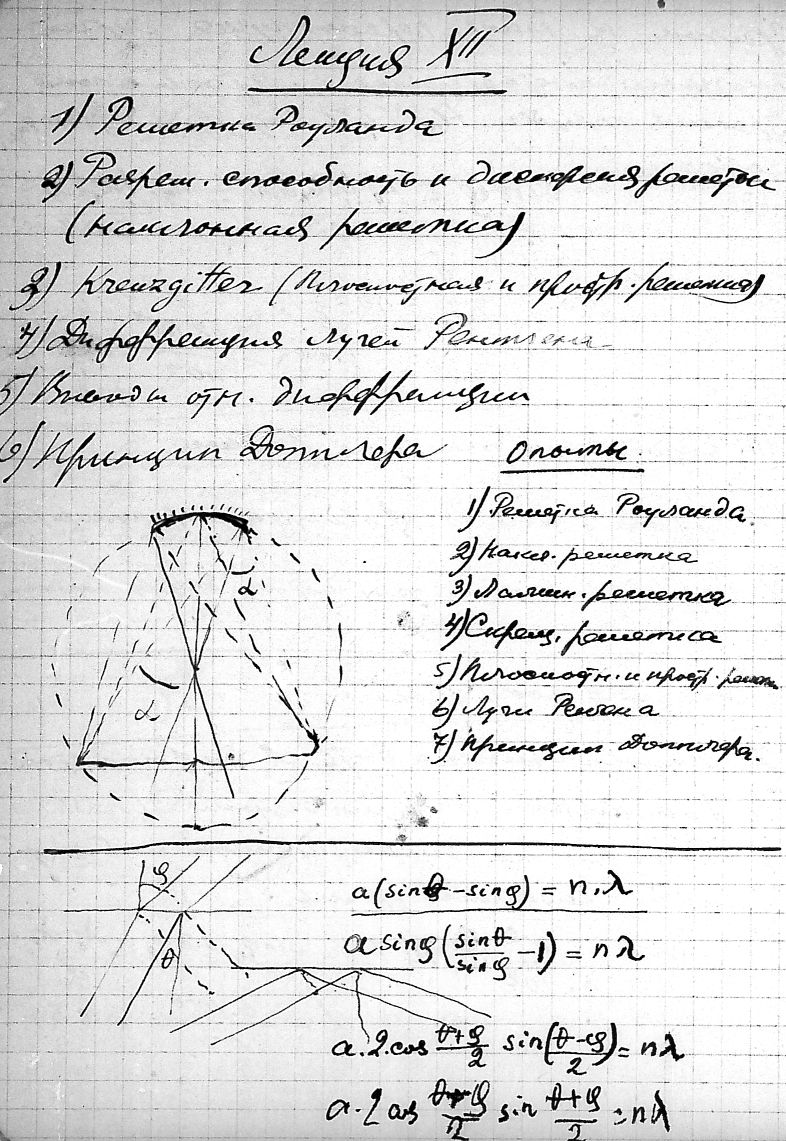 Лекция XII
1) Решетка Роуланда
2) Разреш. способность и дисперсия решетки
(наклонная решетка)
3) Kreuzgitter (Плоскостная и простр. решетка)
4) Дифференция лучей Рентгена
5) Выводы отн. дифференции
6) Принцип Допплера
Опыты.
1) Решетка Роуланда.
2) Накл. решетка
3) решетка
4) Скрещ. решетка
5) Плоскостн. и простр. решет.
6) Лучи Рентгена
7) Принцип Допплера.
α
α
φ
θ
a(sinθ - sinφ) = n.λ
a sinφ (sinθ/sinφ - 1) = nλ
a.2.cos (θ+φ)/2 sin((θ-φ)/2) = nλ
a.2 cos (θ+φ)/2 sin (θ+φ)/2 = nλ